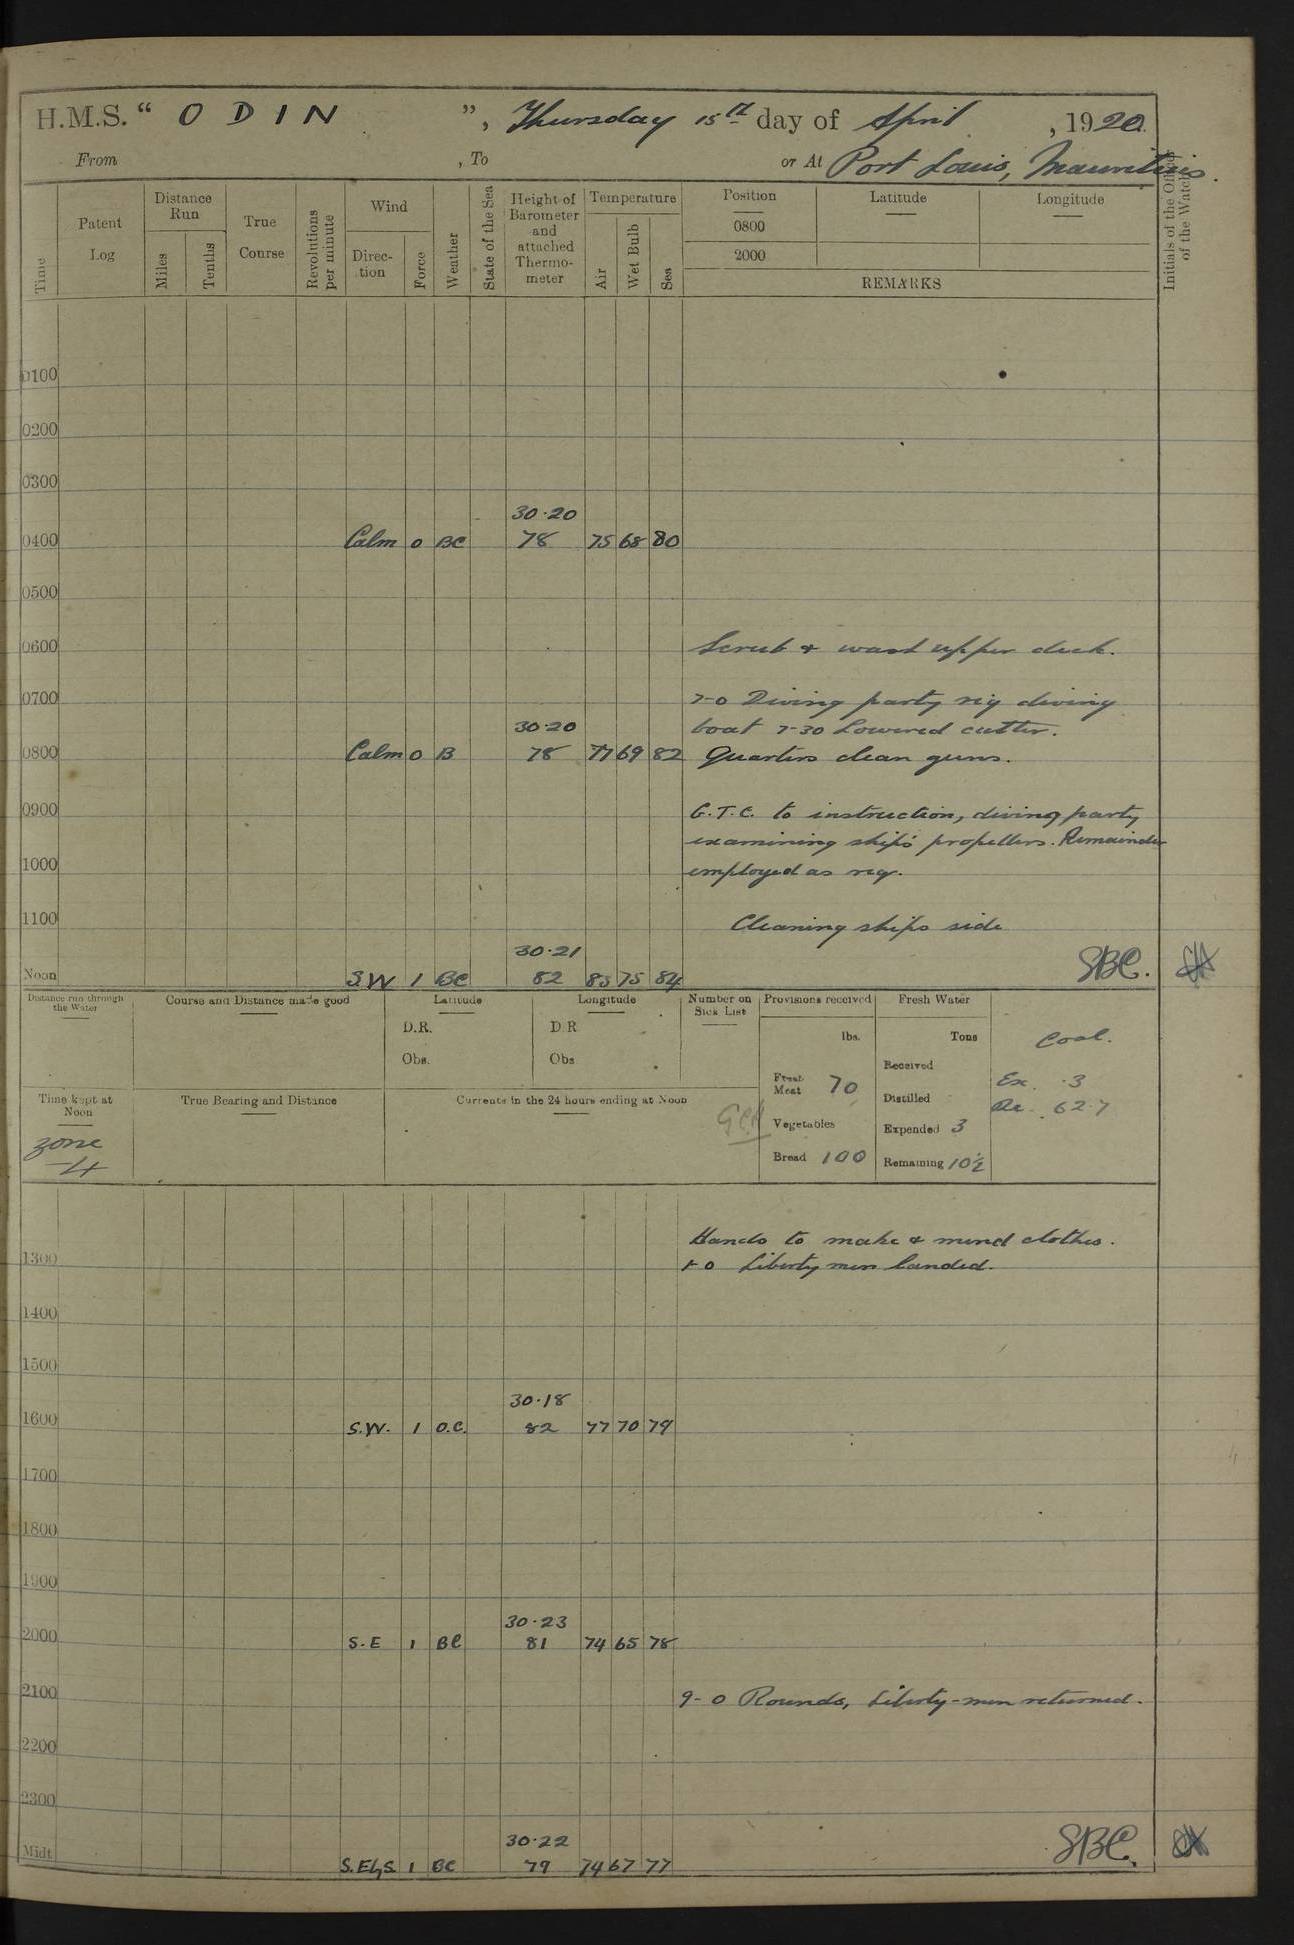 H.M.S. “ ODIN ”, Thursday 15th day of April, 1920.
From , To or At Port Louis, Mauritius.
Time Patent Log Distance Run Miles Tenths True Course Revolutions per minute Wind Direc-tion Force Weather State of the Sea Height of Barometer and attached Thermo-meter Temperature Air Wet Bulb Sea Position 0800 2000 Latitude Longitude REMARKS Initials of the Officer of the Watch
0100
0200
0300
30·20
0400 Calm 0 BC 78 75 68 80
0500
0600 Scrub & wash upper deck.
0700 7-0 Diving party rig diving
30·20 boat 7-30 Lowered cutter.
0800 Calm 0 B 78 77 69 82 Quarters clean guns.
0900 G.T.C. to instruction, diving party
examining ship's propellers. Remainder
1000 employed as req.
1100 Cleaning ships side
30·21
Noon S.W 1 BC 82 83 75 84 SBC.
Distance run through the Water Course and Distance made good Latitude Longitude Number on Sick List Provisions received Fresh Water
D.R. D.R lbs. Tons Coal.
Obs. Obs Received
Fresh Meat 70 Ex. ·3
Distilled Re. 62·7
Time kept at Noon True Bearing and Distance Currents in the 24 hours ending at Noon
Vegetables Expended 3
zone
-4 Bread 100 Remaining 10½
Hands to make & mend clothes.
1300 1-0 Liberty men landed.
1400
1500
30·18
1600 S.W. 1 O.C. 82 77 70 79
1700
1800
1900
30·23
2000 S.E 1 BC 81 74 65 78
2100 9-0 Rounds, Liberty-men returned.
2200
2300
30·22
Midt S.EbyS. 1 BC 79 74 67 77 SBC.